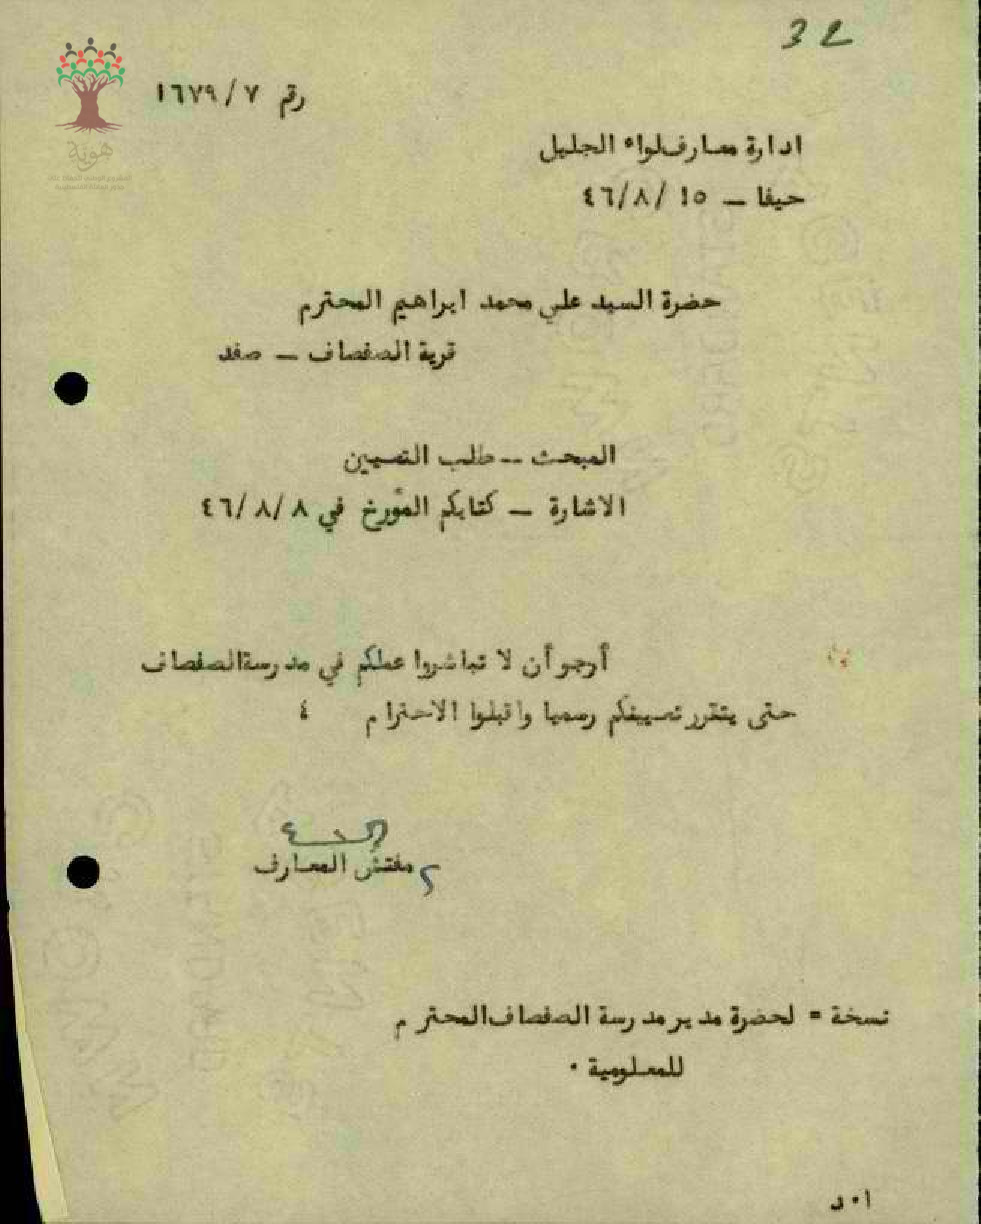 32
رقم ٧/١٦٧٩
هوية
ادارة معارف لواء الجليل
حيفا – ١٥/٨/٤٦
حضرة السيد علي محمد ابراهيم المحترم
قرية الصفصاف – صفد
المبحث – طلب التعيين
الاشارة – كتابكم المؤرخ في ٨/٨/٤٦
أرجو أن لا تباشروا عملكم في مدرسة الصفصاف
حتى يتقرر تعيينكم رسميا واقبلوا الاحترام ٤
مفتش المعارف
نسخة = لحضرة مدير مدرسة الصفصاف المحترم
للمعلومية ٠
ا٠د